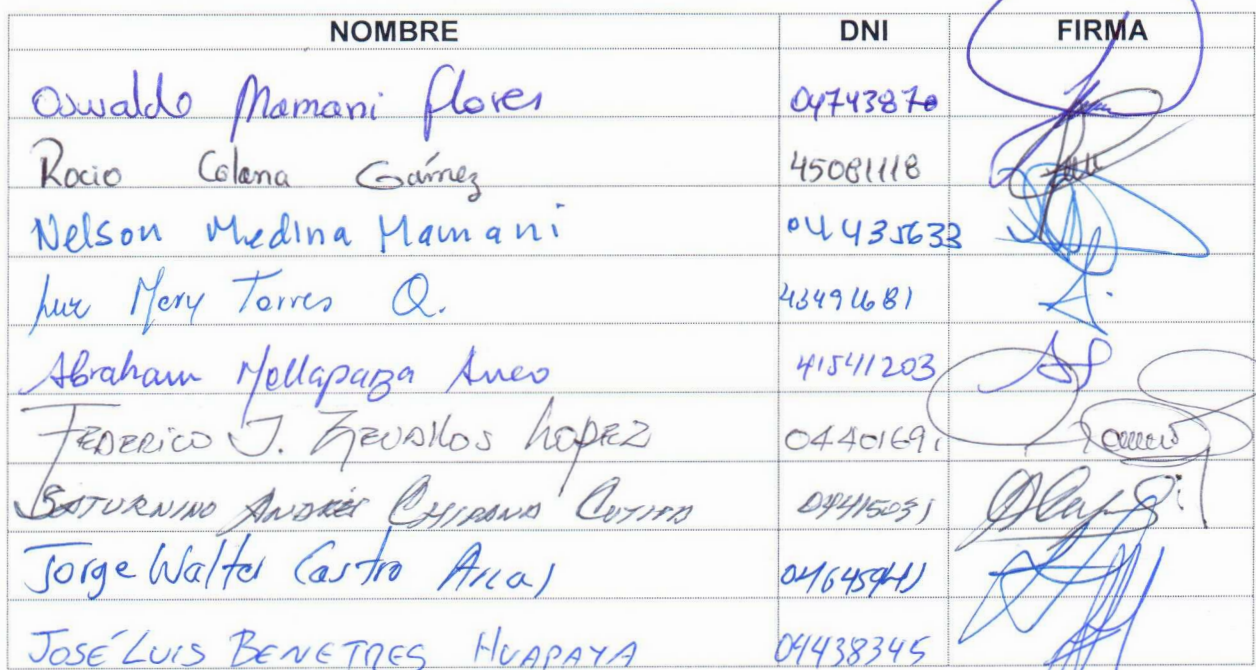 NOMBRE DNI FIRMA
Oswaldo Mamani Flores 04743870
Rocio Colana Gámez 45081118
Nelson Medina Mamani 04435633
Luz Mery Torres Q.
Abraham Mollapaza Anco 41541203
FEDERICO J. ZEVALLOS LOPEZ 04401691
SATURNINO ANDRÉS CHIPANA CUTIPA 04415031
Jorge Walter Castro Arias
JOSÉ LUIS BENETRES HUAPAYA 04438345